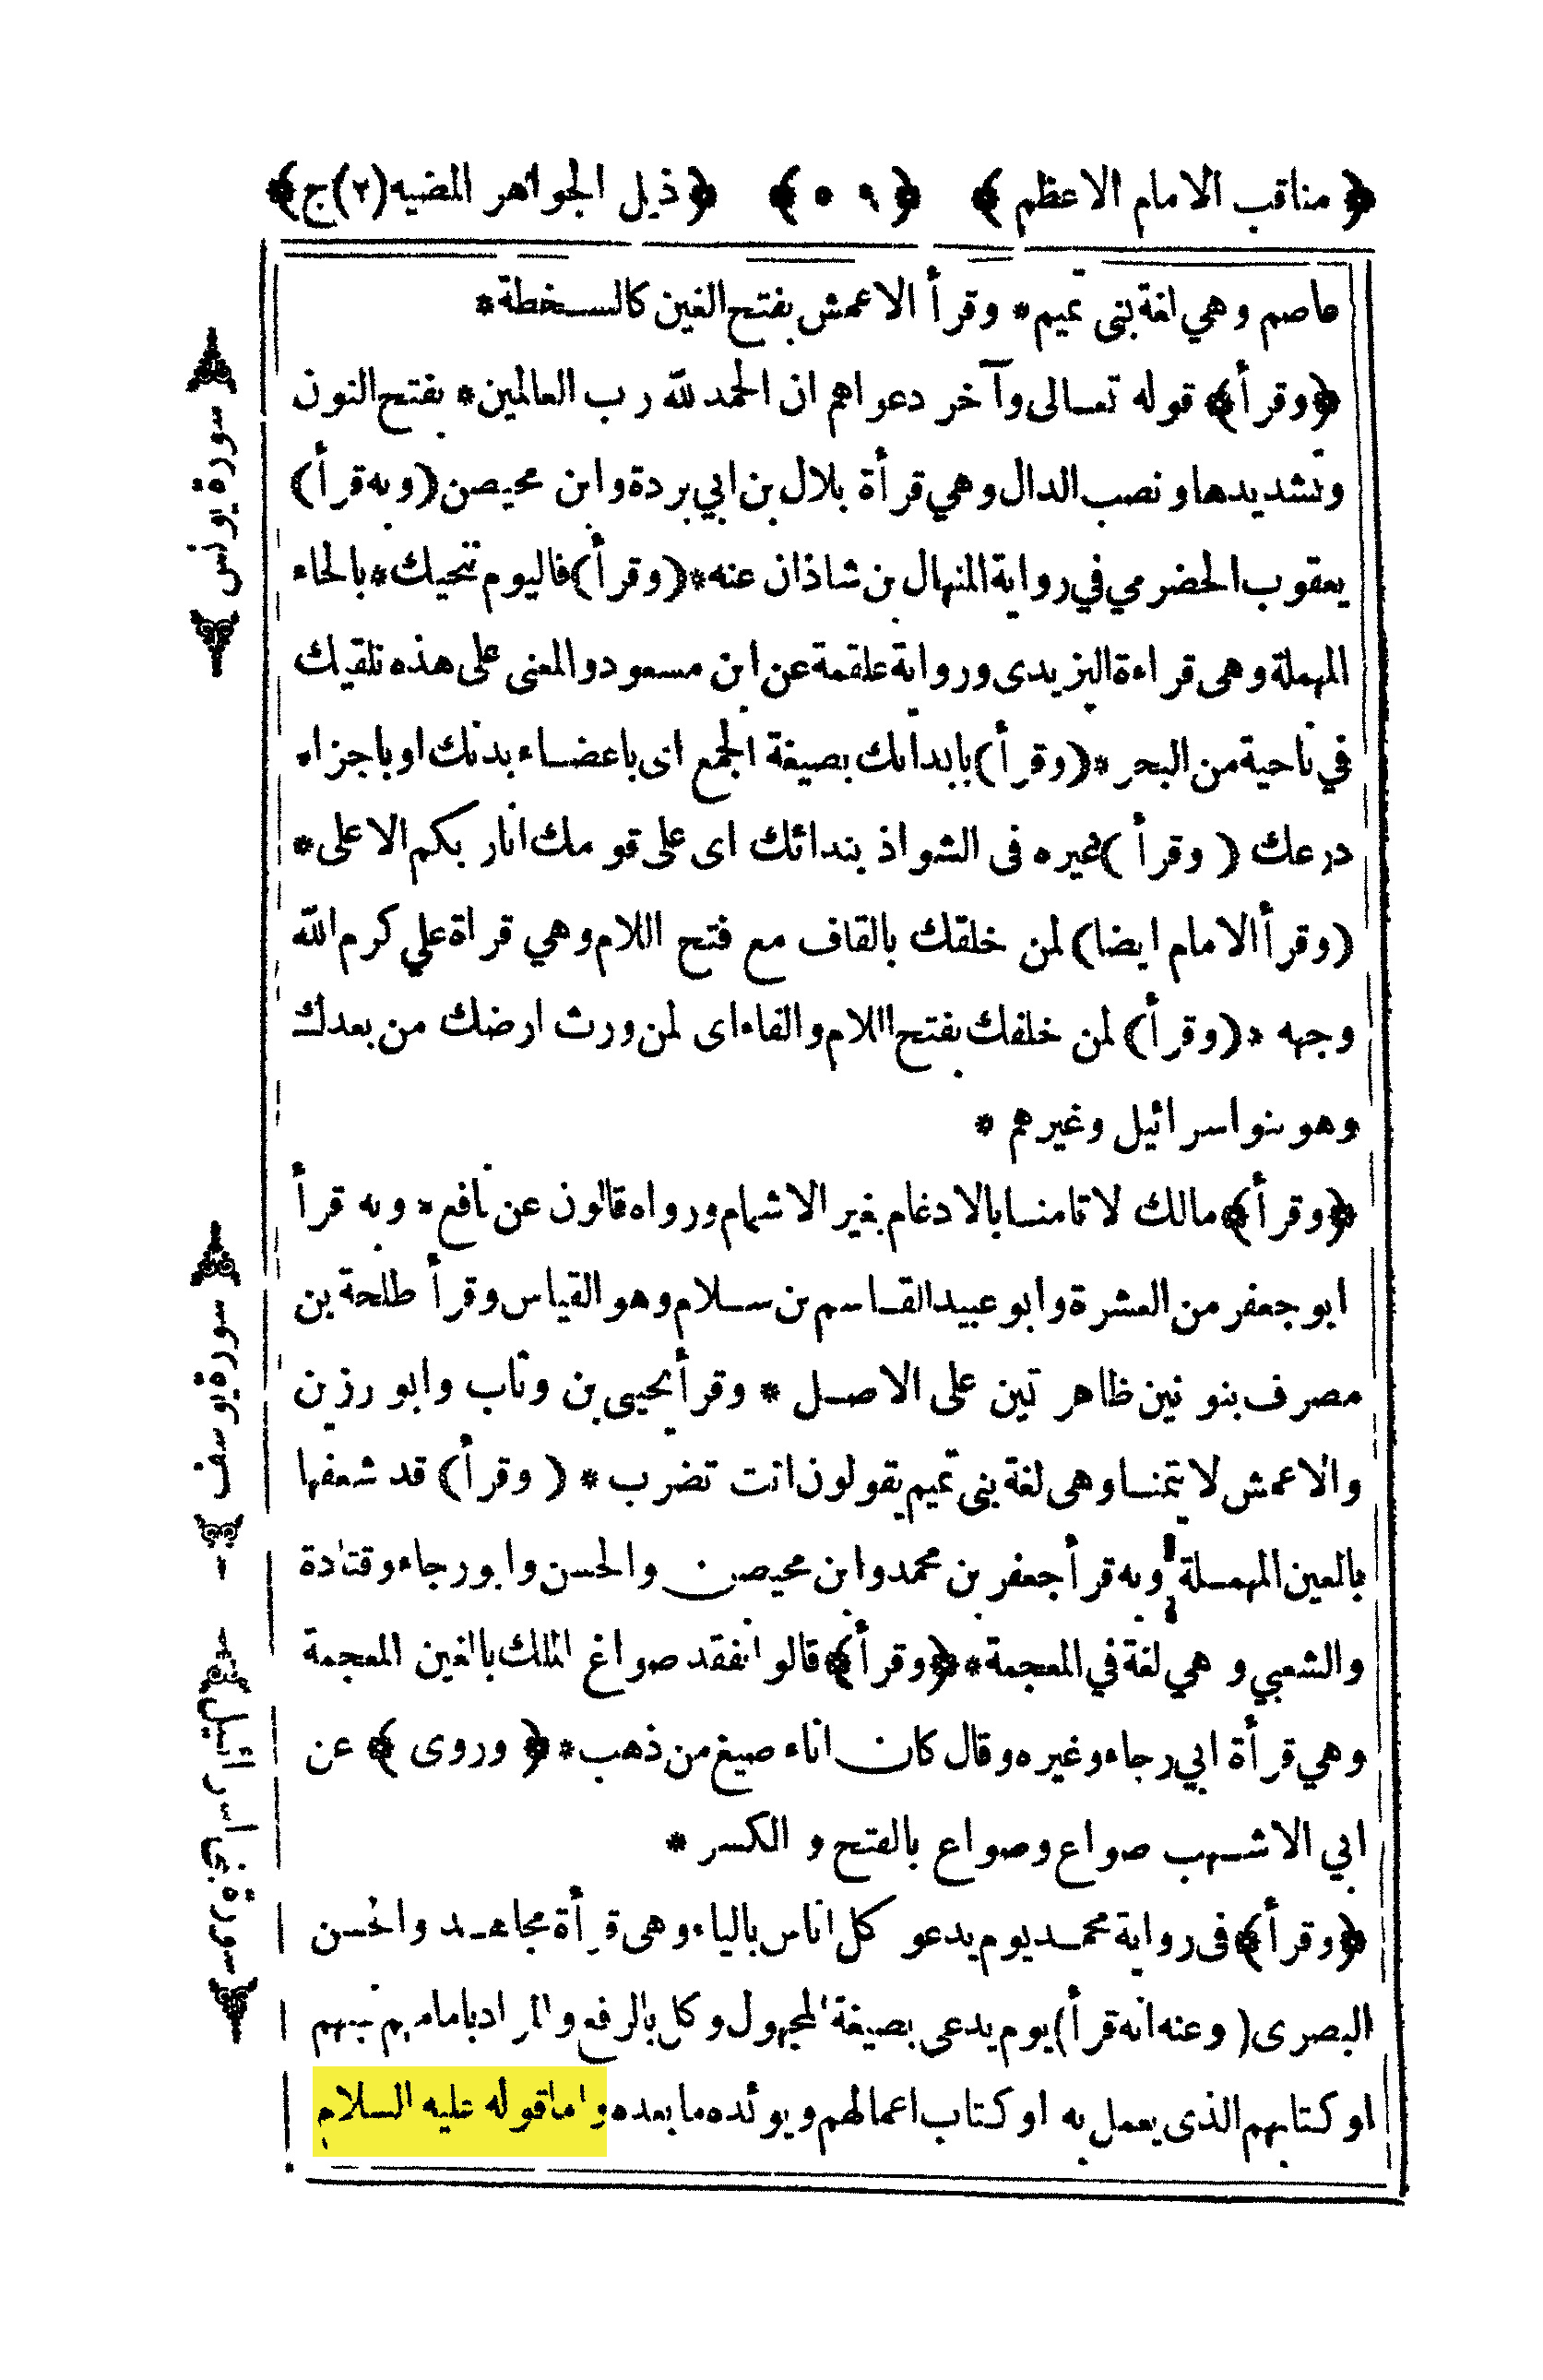 ﴿ مناقب الامام الاعظم ﴾ ﴿ ٥٠٩ ﴾ ﴿ ذيل الجواهر المضيه (٢) ج ﴾
عاصم وهي لغة بنى تميم * وقرأ الاعمش بفتح الغين كالسخطة *
﴿ وقرأ ﴾ قوله تعالى وآخر دعواهم ان الحمد لله رب العالمين * بفتح النون
وتشديدها ونصب الدال وهي قرأة بلال بن ابي بردة وابن محيصن (وبه قرأ)
يعقوب الحضرمي في رواية المنهال بن شاذان عنه * (وقرأ) فاليوم ننحيك * بالحاء
المهملة وهى قراءة اليزيدى ورواية علقمة عن ابن مسعود والمعنى على هذه نلقيك
في ناحية من البحر * (وقرأ) بابدانك بصيغة الجمع اى باعضاء بدنك او باجزاء
درعك ( وقرأ ) غيره فى الشواذ بندائك اى على قومك انا ربكم الاعلى *
(وقرأ الامام ايضا) لمن خلقك بالقاف مع فتح اللام وهي قراة علي كرم الله
وجهه * (وقرأ) لمن خلفك بفتح اللام والفاء اى لمن ورث ارضك من بعدك
وهو بنو اسرائيل وغيرهم *
﴿ وقرأ ﴾ مالك لا تامنا بالادغام بغير الاشمام ورواه قالون عن نافع * وبه قرأ
ابو جعفر من العشرة وابو عبيد القاسم بن سلام وهو القياس وقرأ طلحة بن
مصرف بنونين ظاهرتين على الاصل * وقرأ يحيى بن وثاب وابو رزين
والاعمش لا يتمنا وهى لغة بنى تميم يقولون انت تضرب * ( وقرأ ) قد شعفها
بالعين المهملة وبه قرأ جعفر بن محمد وابن محيصن والحسن وابو رجاء وقتادة
والشعبي و هي لغة في المعجمة * ﴿ وقرأ ﴾ قالوا نفقد صواغ الملك بالغين المعجمة
وهي قرأة ابي رجاء وغيره وقال كان اناء صيغ من ذهب * ﴿ وروى ﴾ عن
ابي الاشهب صواع وصواع بالفتح و الكسر *
﴿ وقرأ ﴾ فى رواية محمد يوم يدعو كل اناس بالياء وهى قرأة مجاهد والحسن
البصرى ( وعنه انه قرأ ) يوم يدعى بصيغة المجهول وكل بالرفع والمراد بامامهم نبيهم
او كتابهم الذى يعمل به او كتاب اعمالهم ويوئده ما بعده واما قوله عليه السلام
﴿ سورة يونس ﴾
﴿ سورة يوسف ﴾
﴿ سورة بنى اسرائيل ﴾